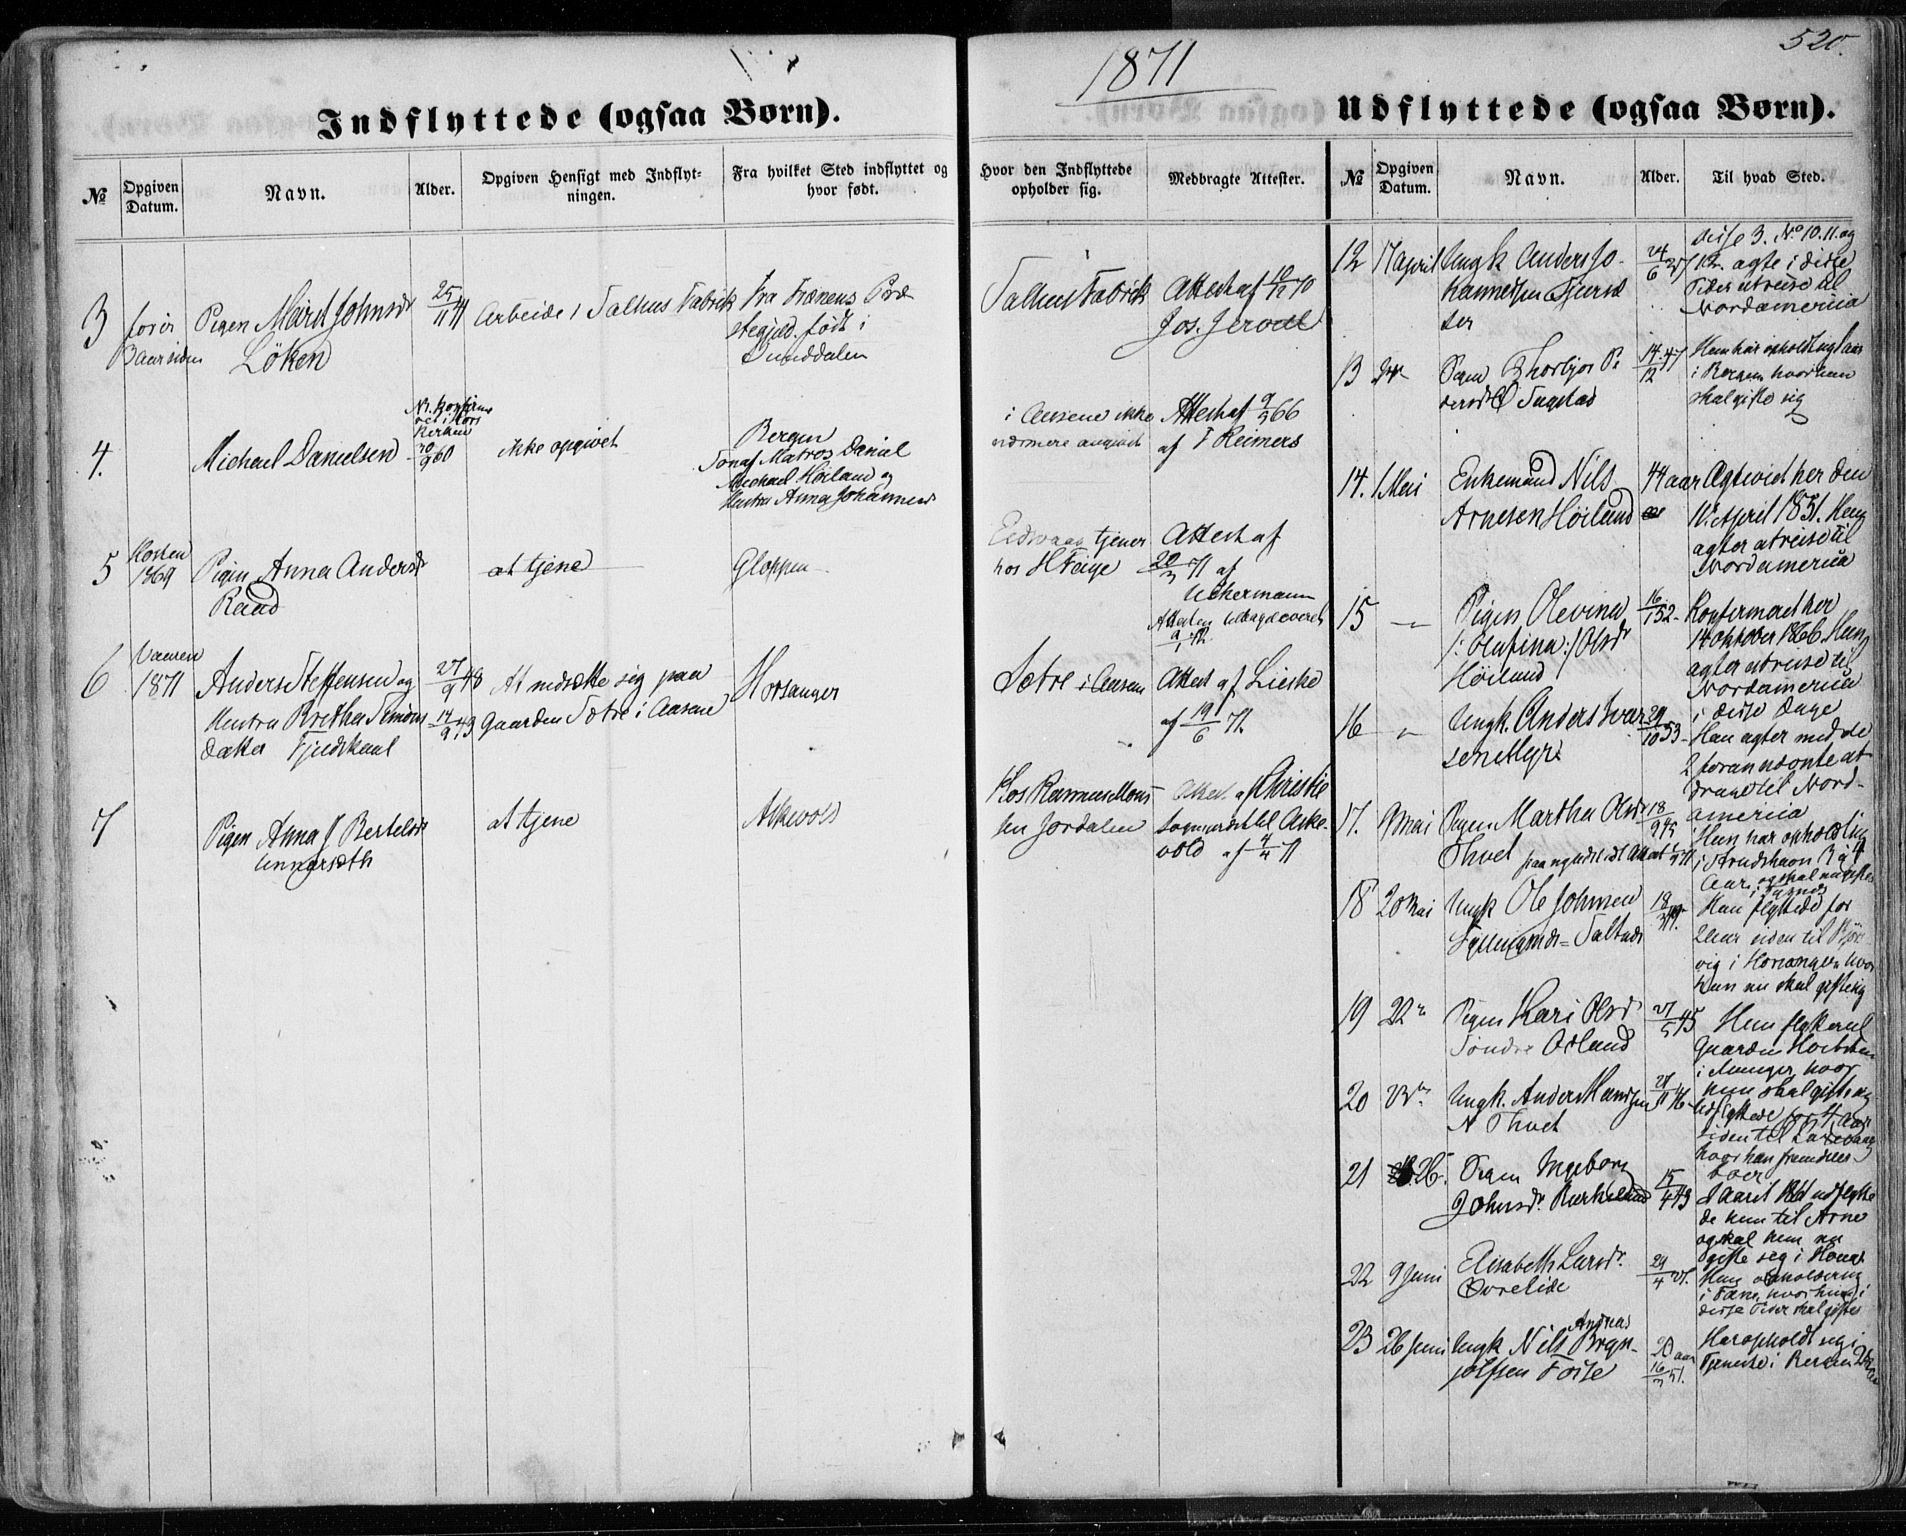 1871
520.
Indflyttede (ogsaa Børn).
Udflyttede (ogsaa Børn).
№
Opgiven Datum.
Navn.
Alder.
Opgiven Hensigt med Indflyt-
ningen.
Fra hvilket Sted indflyttet og
hvor født.
Hvor den Indflyttede
opholder sig.
Medbragte Attester.
№
Opgiven Datum.
Navn.
Alder.
Til hvad Sted.
3
for
3 aar siden
Pigen Marit Johnsdr
Löken
25/11 41
Arbeide i Salhus Fabrik
Fra Frænens Præ
stegjæld. født i
Sunddalen
Salhus Fabrik
Attest af 10/12 70
Jos. Jervell
4.
Michael Danielsen
Kirken
30/9 60
ikke opgivet
Bergen
Søn af Matros Daniel
Michael Höiland og
Hustru Anna Johannesd
i Aasene ikke
nærmere angivet
Attest af 9/3 66
af F Reimers
5
Høsten
1869
Pigen Anna Andersdr
Raad
at tjene
Gloppen
Eidsvaag tjener
hos H Feige
Attest af
20/3 71 af
Uchermann
Attesten tilbageleveret
9/1 72.
6
Vaaren
1871
Anders Steffensen og
Hustru Brithe Simons
datter Fjedskaal
27/9 48
14/9 43
At nedsætte sig paa
Gaarden Sætre i Aasene
Hosanger
Sætre i Aasene
Attest af Lieske
af 19/6 71.
7
Pigen Anna J Bertelsdr
Unnarsæth
at tjene
Askevold
Hos Rasmus Mons
sen Jordalen
Attest af Christie
Sogneprest til Aske-
vold af 4/4 71
12
17 april
Ungk Anders Jo-
hannesen Tjersæ
ter
24/6
disse 3. No 10. 11. og
12. agte i disse
Tider at reise til
Nordamerica
13
Pigen Thorbjør Pe
dersdr Ø Tugstad
14/12 47
Hun har opholdt sig 1 aar
i Bergen hvor hun
skal gifte sig
14.
1 Mai
Enkemand Nils
Arnesen Höiland
44 aar
Ægteviet her den
11. April 1851. Han
agter at reise til
Nordamerica
15
-"-
Pigen Olevina
/: Olufina :/ Olsdr
Höiland
16/1 52
Konfirmeret her
14 Oktober 1866. Hun
agter at reise til
Nordamerica
i disse Dage
16
"
Ungk. Anders Ivar
sen Myre
29/10 53
Han agter med de
2 foran nævnte at
drage til Nord-
america
17.
9 Mai
Pigen Martha Olsdr
Thvet
18/9 45
Hun har opholdt sig
i Arnedshavn 3 à 4
Aar, og skal nu giftes
18
20 Mai
Ungk Ole Johnsen
18/3 49.
Han flyttede for
2 aar siden til Bjør
vig i Hosanger hvor
han nu skal gifte sig
19
22
Pigen Kari Olsdr
Söndre Asland
27/5 45
Hun flytter til
Gaarden
i Hamger, hvor
hun skal gifte sig
20
Ungk. Anders Hansen
N Thvet
Udflyttede for 4 aar
siden til Laxevaag
hvor han fremdeles
boer
21
26.
Pigen Ingeborg
Johnsdr. Birkeland
15/4 43
I Aaret udflytte
de hun til Arne
og skal hun nu
gifte sig i Haus
22
9 Juni
Elisabeth Larsdr.
Øvrelide
29/4
Hun opholder sig
i Fane, hvor hun i
disse Tider skal giftes
23
26 Juni
Andreas
Ungk Nils Bryn-
jolfsen Fosse
20 aar
16/3 51.
Har opholdt sig i
Tjeneste i Bergen